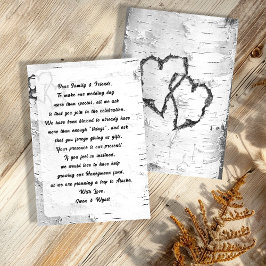 Dear Family & Friends,
To make our wedding day
more than special, all we ask
is that you join in the celebration.
We have been blessed to already have
more than enough "things", and ask
that you forego giving us gifts,
Your presence is our present!
If you feel so inclined,
we would love to have help
growing our Honeymoon fund,
as we are planning a trip to Alaska.
With Love,
Owen & Wyatt